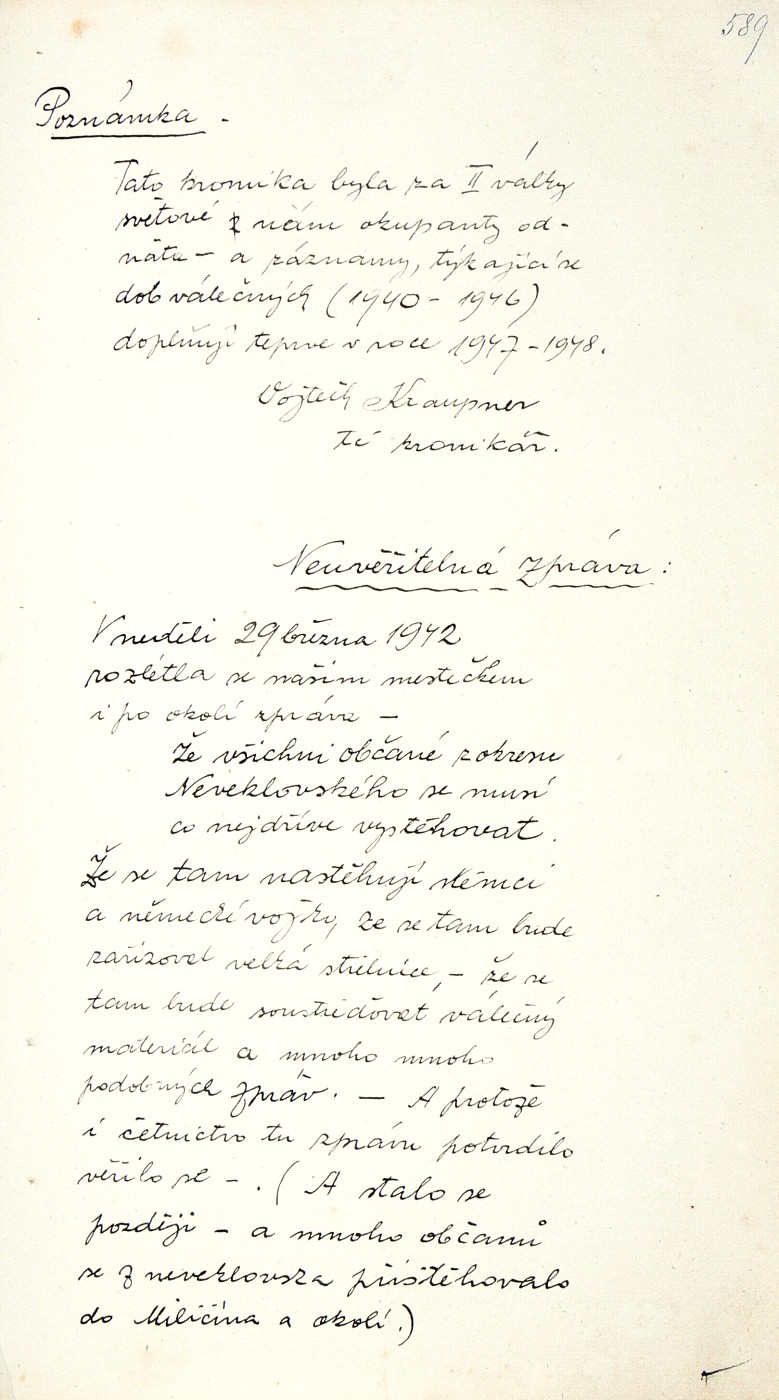 589
Poznámka -
Tato kronika byla za II války
světové nám okupanty od-
ňata - a záznamy, týkající se
dob válečných (1940 - 1946)
doplňuji teprve v roce 1947 - 1948.
Vojtěch Kraupner
kronikář.
Neuvěřitelná zpráva:
V neděli 29 března 1942
rozlétla se naším mestečkem
i po okolí zpráva -
Že všichni občané z okresu
Neveklovského se musí
co nejdříve vystěhovat.
Že se tam nastěhují němci
a německé vojsko, že se tam bude
zařizovat velká střelnice, - že se
tam bude soustřeďovat válečný
materiál a mnoho mnoho
podobných zpráv. - A protože
i četnictvo tu zprávu potvrdilo
věřilo se - . (A stalo se
později - a mnoho občanů
se z neveklovska přistěhovalo
do Miličína a okolí.)